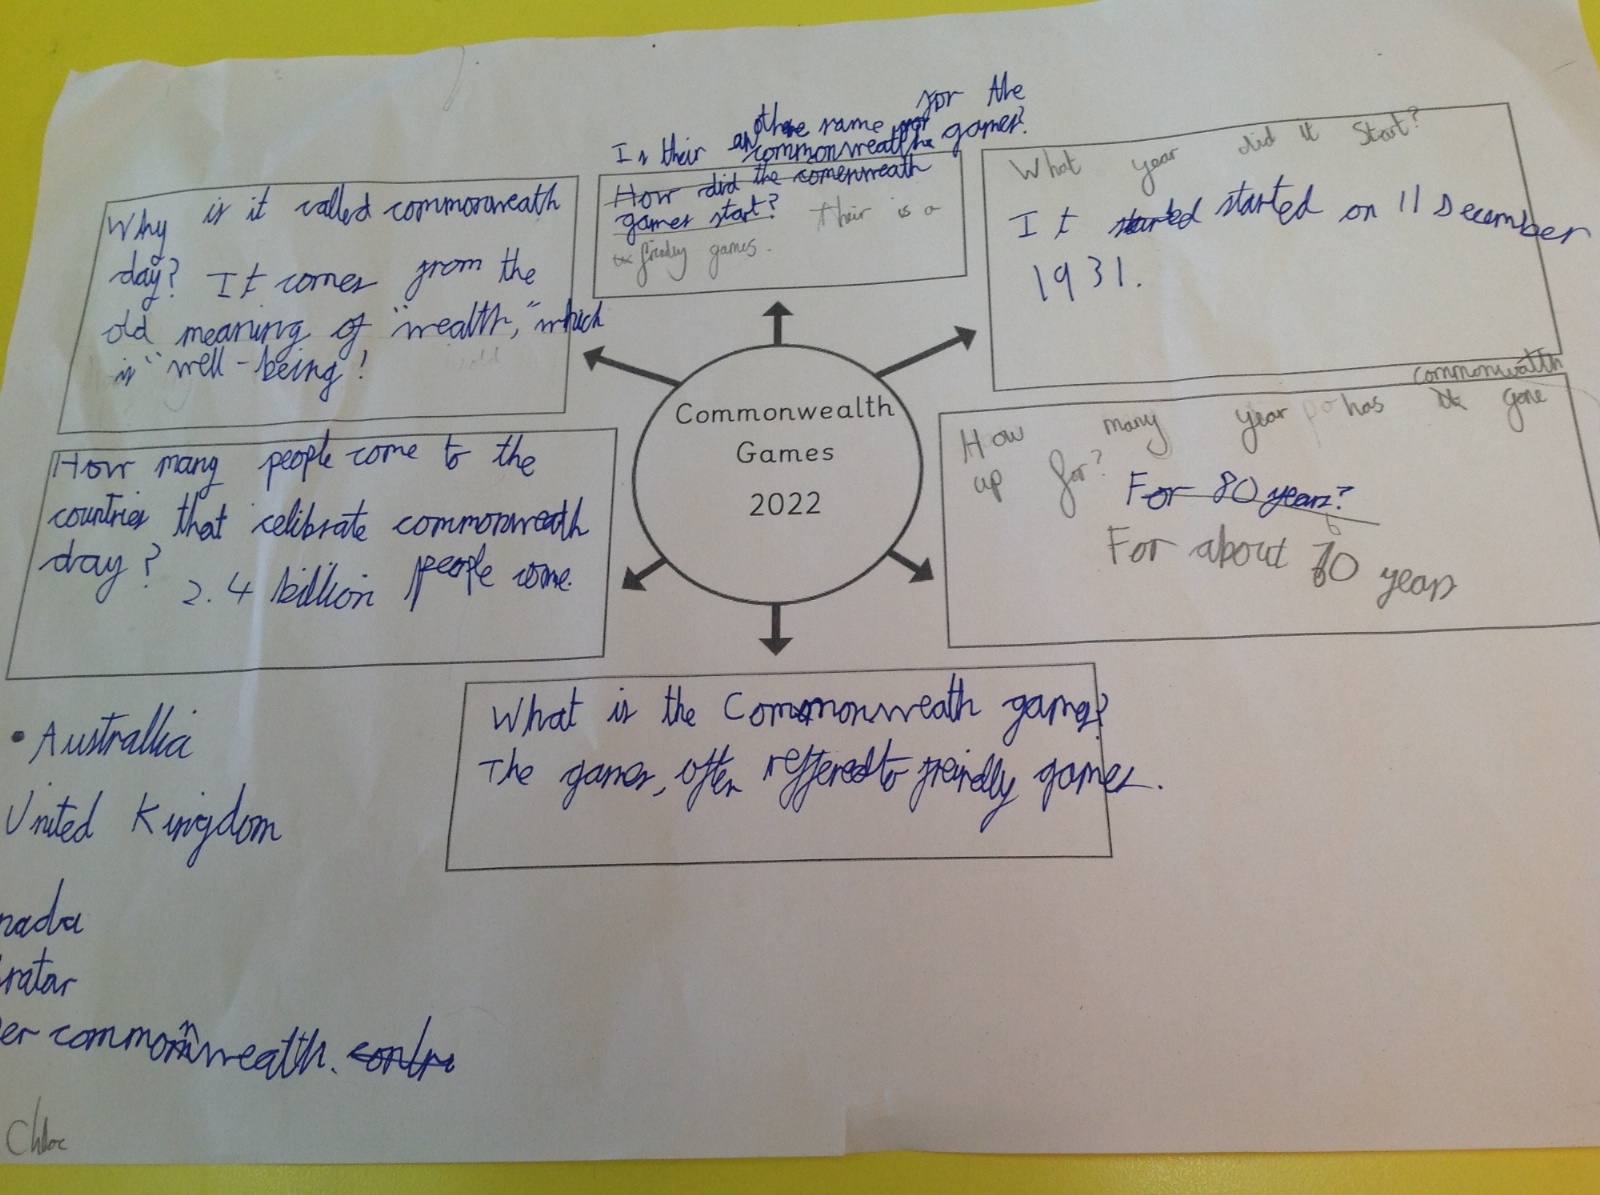 Is their another name for the
commonwealth games?
How did the comenweath
games start? their is a
friedly games.
Why is it called commonweath
day? It comes from the
old meaning of "wealth," which
is "well-being!
What year did it start?
It started started on 11 December
1931.
Commonwealth
Games
2022
How many people come to the
countries that celibrate commonweath
day?
2.4 billion people come.
commonwalth
How many year has gone
up for?
For 80 years?
For about 70 years
What is the Commonweath games?
The games, often reffered to freindly games.
• Australlia
United Kingdom
nada
ratar
er commonweath. contre
Chloe